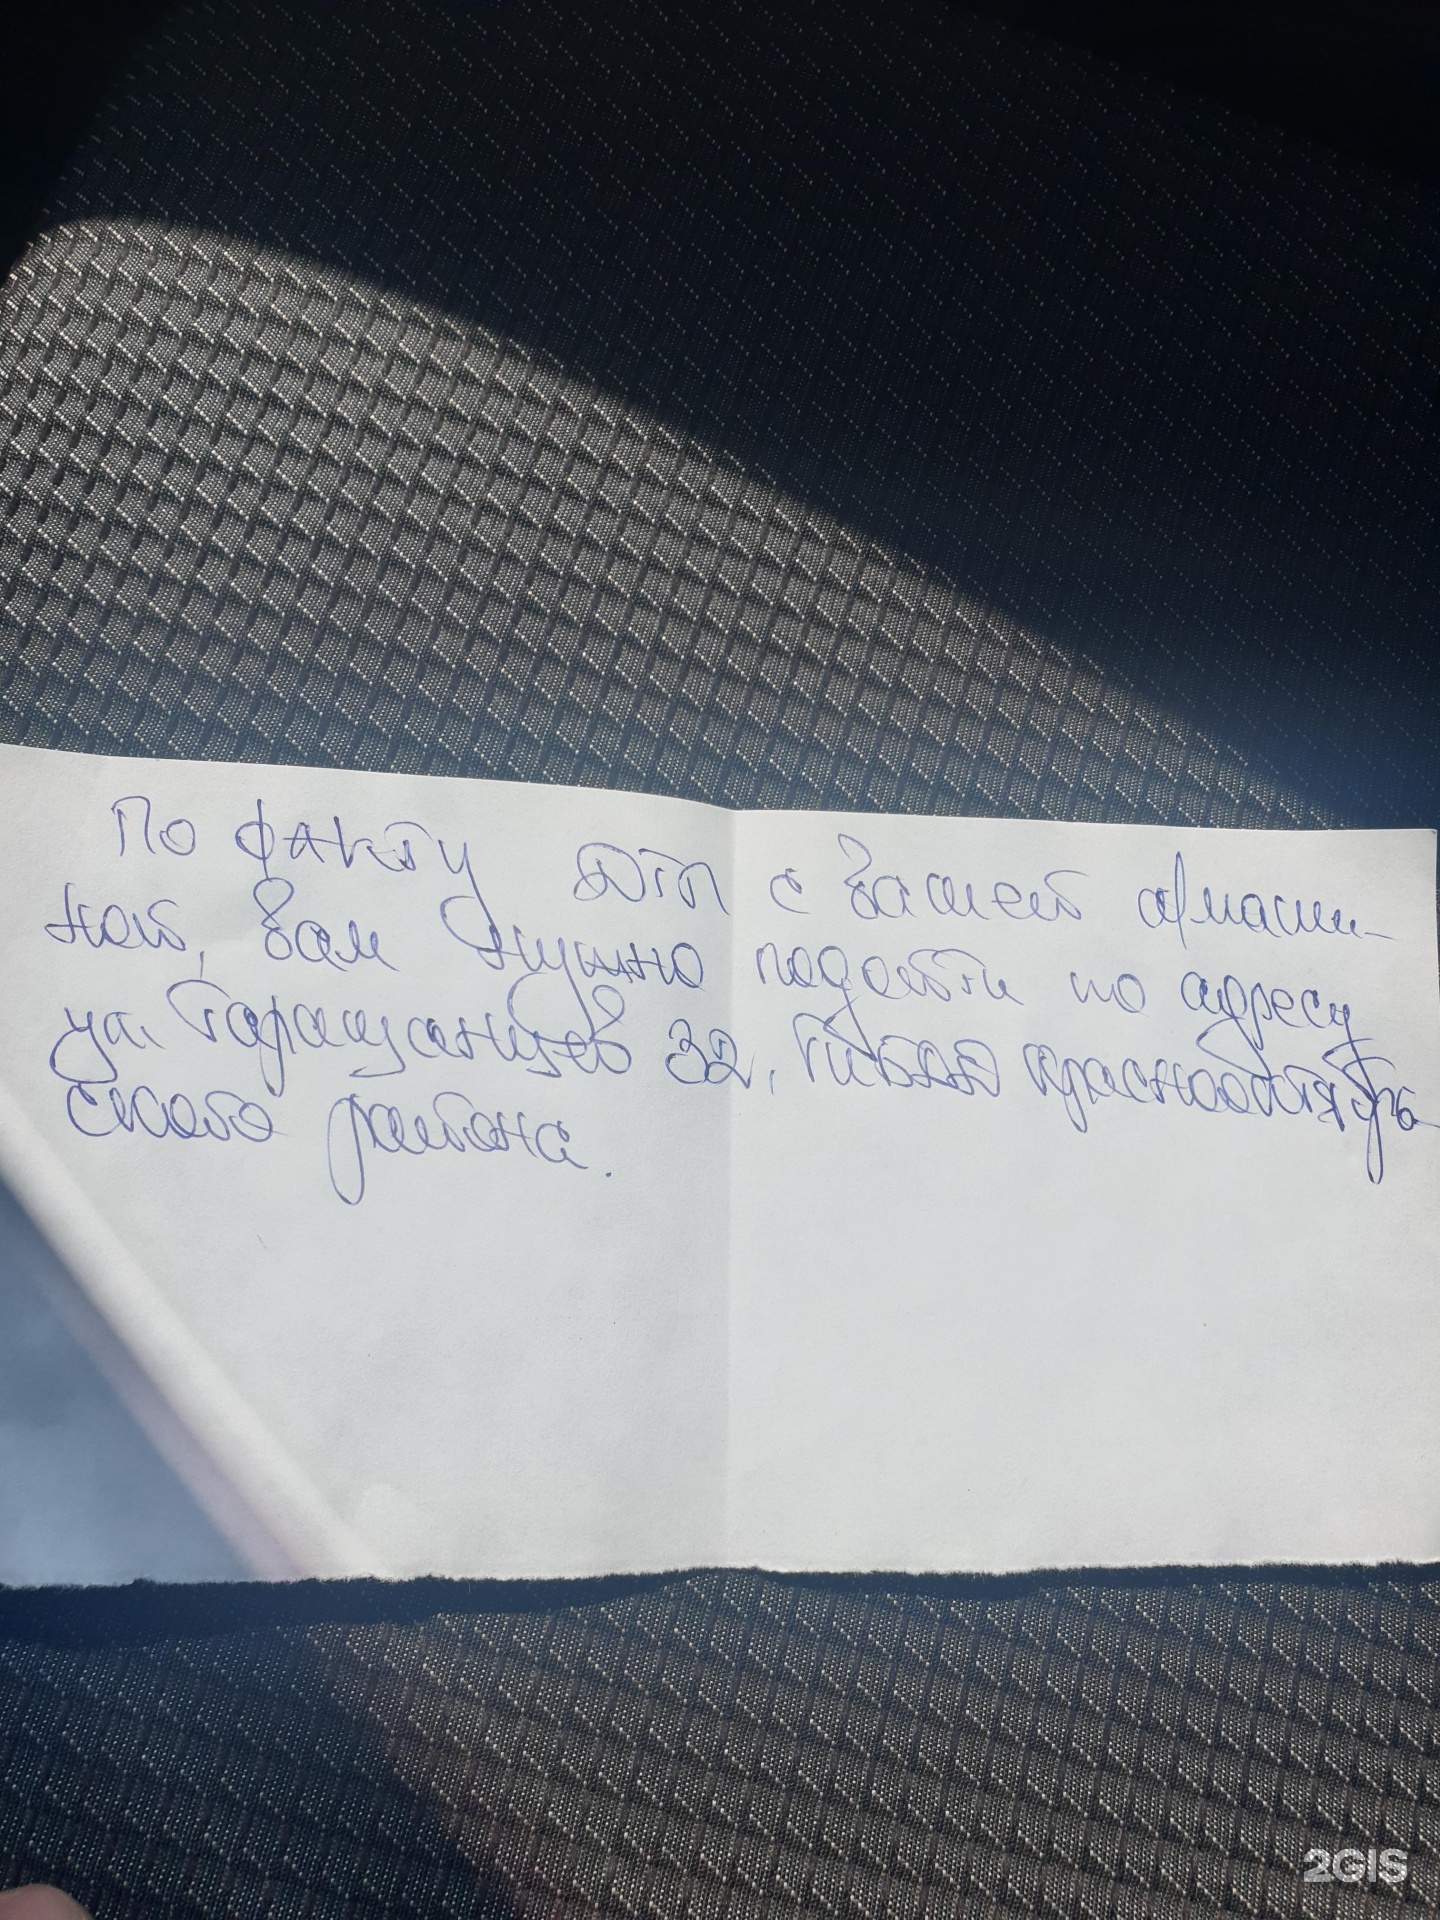 По факту ДТП с вашей а/маши-
ной, вам нужно подойти по адресу
ул. Таращанцев 32, ГИБДД Краснооктябрь-
ского района.
2GIS